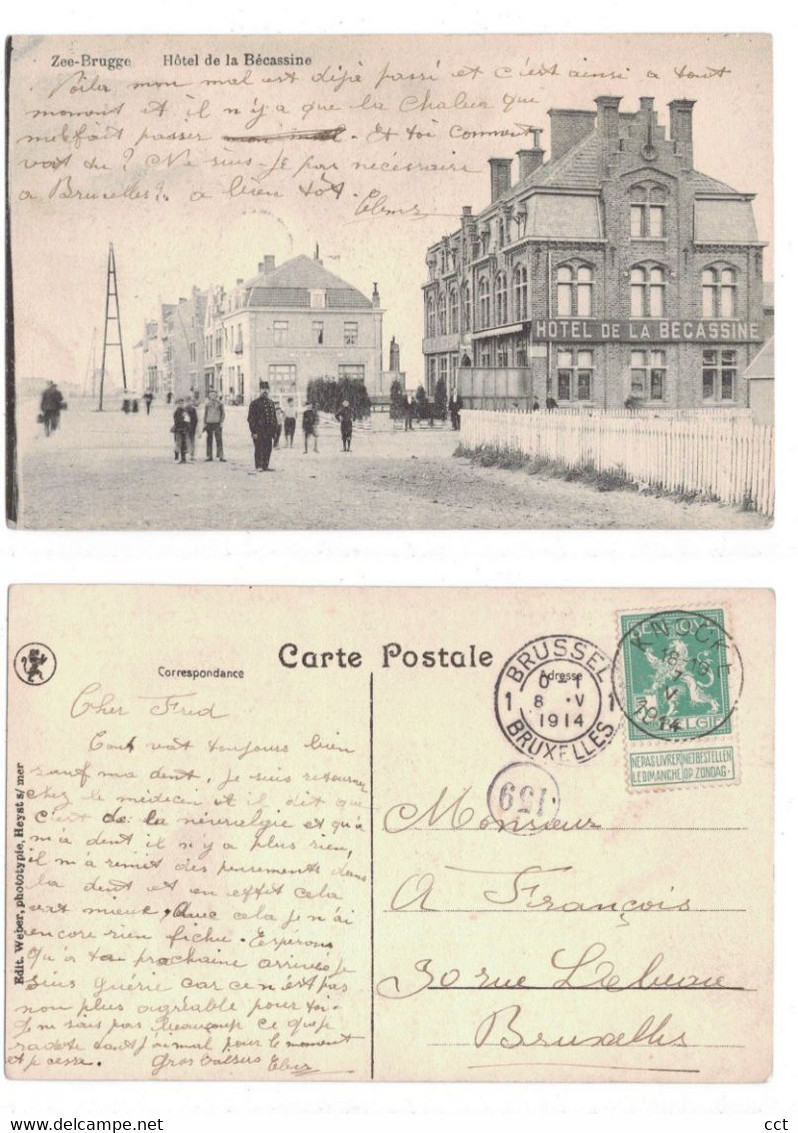 Zee-Brugge Hôtel de la Bécassine
Voila mon mal est déjà passé et c'est ainsi a tout
moment et il n'y a que la chaleur que
me fait passer mon mal. Et toi comment
vat tu? Ne suis-je pas nécessaire
a Bruxelles? a bien tôt.
HOTEL DE LA BÉCASSINE
Carte Postale
Correspondance
Adresse
BRUSSEL
0-1
1 8 V 1
1914
BRUXELLES
KNOCKE
18-19
7
V
1914
BELGIE
NE PAS LIVRER NIET BESTELLEN
LE DIMANCHE OP ZONDAG
159
Cher Fred
Tout vat toujours bien
sauf ma dent, je suis retourner
chez le médecin et il dit que
c'est de la néuralgie et qu'a
m'a dent il n'y a plus rien,
il m'a remit des pensements dans
la dent et en effet cela
vat mieux, avec cela je n'ai
encore rien fichu. Espérons
qu'a ta prochaine arrivée je
suis guérie car ce n'est pas
non plus agréable pour toi.
Je n sais pas beaucoup ce que je
radote tant j'ai mal pour le moment
et je cesse. Gros baisers
Edit. Weber, phototypie, Heyst s/ mer
Monsieur
A François
30 rue Lebeau
Bruxelles
cct